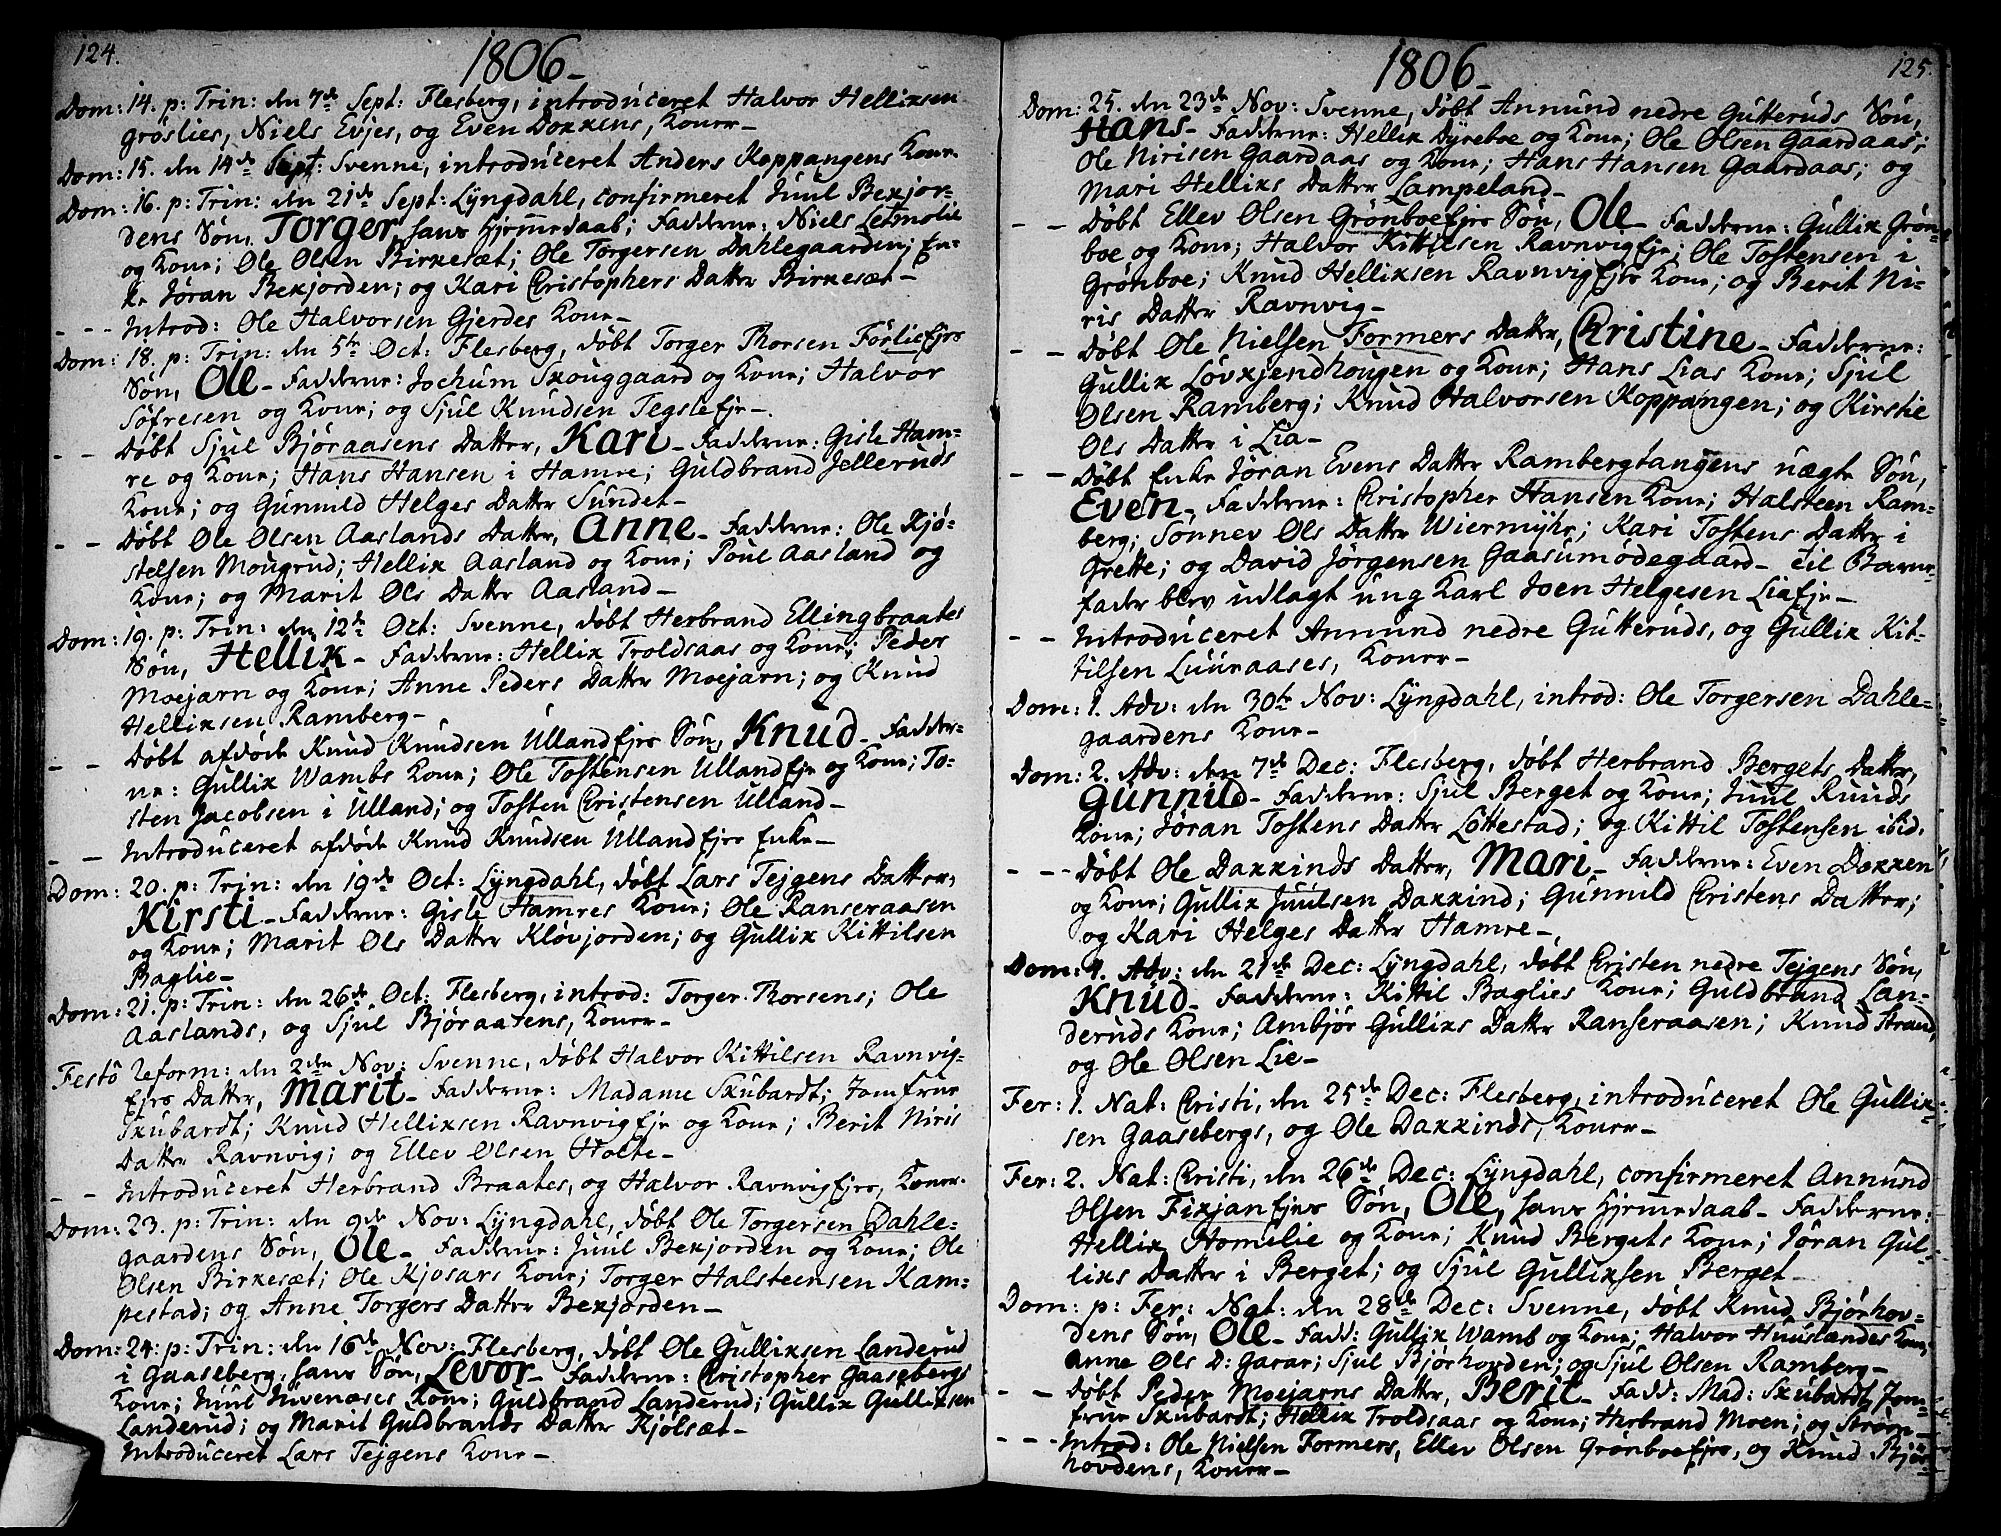 124.
1806_
Dom: 14. p: Trin: den 7de Sept: Flesberg, introduceret Halvor Helliksen
Grøslies, Niels Evjes, og Even Dokkens, Koner_
Dom: 15. den 14de Sept: Svenne, introduceret Anders Koppangens Kone.
Dom: 16. p: Trin: den 21de Sept: Lyngdahl, confirmeret Juul Bekjor-
dens Søn, Torger hans Hjemmedaab; Fadderne: Niels Letmolie
og Kone; Ole Olsen Birkesæt; Ole Torgersen Dahlegaarden; En-
ke Jøran Bekjorden; og Kari Christophers Datter Birkesæt_
- - - Introd: Ole Halvorsen Gjerdes Kone_
Dom: 18. p: Trin: den 5te Oct: Flesberg, døbt Torger Thorsen Førliesejes
Søn, Ole_ Fadderne: Jochum Skouggaard og Kone; Halvor
Søfresen og Kone; og Sjul Knudsen Tegsleje_.
- - Døbt Sjul Bjøraasens Datter, Kari_ Fadderne: Gisle Ham-
re og Kone; Hans Hansen i Hamre; Guldbrand Jelleruds
Kone; og Gunnild Helges Datter Sundet_
- - Døbt Ole Olsen Aaslands Datter, Anne_ Fadderne: Ole Kjø-
stelsen Mougrud; Hellik Aasland og Kone; Poul Aasland og
Kone; og Marit Ols Datter Aasland_
Dom: 19. p: Trin: den 12te Oct: Svenne, døbt Herbrand Ellingbraates
Søn, Hellik_ Fadderne: Hellik Troldsaas og Kone; Peder
Moejarn og Kone; Anne Peders Datter Moejarn; og Knud
Helliksen Ramberg_
- - Døbt afdøde Knud Knudsen Ullandejes Søn, Knud_ Fadder-
ne: Gullik Wambs Kone; Ole Tostensen Ullandeje og Kone; To-
sten Jacobsen i Ulland; og Tosten Christensen Ulland_
- - Introduceret afdøde Knud Knudsen Ullandejes Enke_
Dom: 20. p: Trin: den 19de Oct: Lyngdahl, døbt Lars Tejgens Datter,
Kirsti_ Fadderne: Gisle Hamres Kone; Ole Ranseraasen
og Kone; Marit Ols Datter Kløvjorden; og Gullik Kittilsen
Baglie_
Dom: 21. p: Trin: den 26de Oct: Flesberg, introd: Torger Thorsens; Ole
Aaslands, og Sjul Bjøraasens, Koner_
Festo Reform: den 2den Nov: Svenne, døbt Halvor Kittilsen Ravnvig-
ejes Datter, Marit_ Fadderne: Madame Skubardt; Jomfrue
Skubardt; Knud Helliksen Ravnvigeje og Kone; Berit Niris
Datter Ravnvig; og Ellev Olsen Holte_
- - Introduceret Herbrand Braates, og Halvor Ravnvigejes, Koner.
Dom: 23. p: Trin: den 9de Nov: Lyngdahl, døbt Ole Torgersen Dahle-
gaardens Søn, Ole_ Fadderne: Juul Bekjorden og Kone; Ole
Olsen Birkesæt; Ole Kjosars Kone; Torger Halsteensen Kam-
pestad; og Anne Torgers Datter Bekjorden_
Dom: 24: p: Trin: den 16de Nov: Flesberg, døbt Ole Gulliksen Landerud
i Gaaseberg, hans Søn, Levor_ Fadderne: Christopher Gaasebergs
Kone; Juul Juvenæses Kone; Guldbrand Landerud; Gullik Gulliksen
Landerud; og Marit Guldbrands Datter Kjølsæt_
Introduceret Lars Tejgens Kone_
125.
1806_
Dom: 25. den 23de Nov: Svenne, døbt Annund nedre Gutteruds Søn,
Hans_ Fadderne: Hellik Dyreboe og Kone; Ole Olsen Gaardaas;
Ole Nirisen Gaardaas og Kone; Hans Hansen Gaardaas; og
Mari Helliks Datter Lampeland_
- - Døbt Ellev Olsen Grønboeejes Søn, Ole_ Fadderne: Gullik Grøn-
boe og Kone; Halvor Kittilsen Ravnvigeje; Ole Tostensen i
Grønboe; Knud Helliksen Ravnvigejes Kone; og Berit Ni-
ris Datter Ravnvig_
- - Døbt Ole Nielsen Formers Datter, Christine_ Fadderne:
Gullik Løvkjendhougen og Kone; Hans Lias Kone; Sjul
Olsen Ramberg; Knud Halvorsen Koppangen; og Kirstie
Ols Datter i Lia_
- - Døbt Enke Jøran Evens Datter Rambergtangens uægte Søn,
Even_ Fadderne: Christopher Hansen Kone; Halsteen Ram-
berg; Sønnev Ols Datter Wiermyhr; Kari Tostens Datter i
Grette; og David Jørgensen Gaasumødegaard_ til Barne-
fader blev udlagt ung Karl Joen Helgesen Liaeje_
- - Introduceret Annund nedre Gutteruds, og Gullik Kit-
tilsen Luuraases, Koner_
Dom: 1. Adv: den 30te Nov: Lyngdahl, introd: Ole Torgersen Dahle-
gaardens Kone_
Dom: 2. Adv: den 7de Dec: Flesberg, døbt Herbrand Bergets Datter,
Gunnild_ Fadderne: Sjul Berget og Kone; Juul Ruuds
Kone; Jøran Tostens Datter Lottestad; og Kittil Tostensen ibid.
- - - Døbt Ole Dakkinds Datter, Mari_ Fadderne: Even Dokken
og Kone; Gullik Juulsen Dakkind; Gunnild Christens Datter;
og Kari Helges Datter Hamre_
Dom: 4. Adv: den 21de Dec: Lyngdahl, døbt Christen nedre Tejgens Søn,
Knud_ Fadderne: Kittil Baglies Kone; Guldbrand Lan-
deruds Kone; Ambjør Gulliks Datter Ranseraasen; Knud Strand,
og Ole Olsen Lie_
Fer: 1. Nat: Christi, den 25de Dec: Flesberg, introduceret Ole Gullik-
sen Gaasebergs, og Ole Dakkinds, Koner_
Fer: 2. Nat: Christi, den 26de Dec: Lyngdahl, confirmeret Annund
Olsen Fikjanejes Søn, Ole, hans Hjemmedaab_ Fadderne:
Hellik Homelie og Kone; Knud Bergets Kone; Jøran Gul-
liks Datter i Berget; og Sjul Gulliksen Berget_
Dom: p: Fer: Nat: den 28de Dec: Svenne, døbt Knud Bjørhov-
dens Søn, Ole_ Fadd: Gullik Wamb og Kone; Halvor Huuslændes Kone;
Anne Ols D: Garar; Sjul Bjørhovden; og Sjul Olsen Ramberg_
- - Døbt Peder Moejarns Datter, Berit_ Fadd: Mad: Skubardt, Jom-
frue Skubardt; Hellik Troldsaas og Kone; Herbrand Moen; og Strøm_
- - - Introd: Ole Nielsen Formers, Ellev Olsen Grønboeejes, og Knud Bjør-
hovdens, Koner_